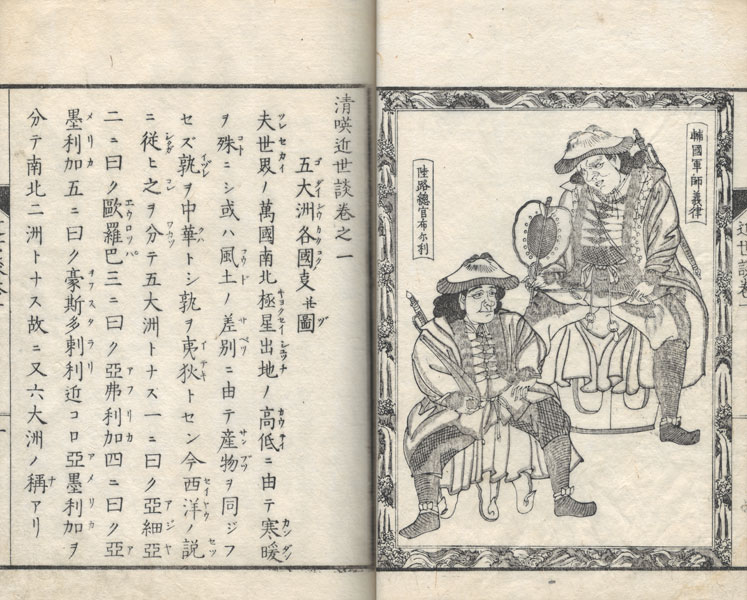 輔國軍師義律
陸路總官布尓利
清𠸄近世談卷之一
五大洲各國圖
夫世界ノ萬國南北極星出地ノ高低ニ由テ寒暖
ヲ殊ニシ或ハ風土ノ差別ニ由テ産物ヲ同ジフ
セズ孰ヲ中華トシ孰ヲ夷狄トセン今西洋ノ説
ニ従ヒ之ヲ分テ五大洲トナス一ニ曰ク亞細亞
二ニ曰ク歐羅巴三ニ曰ク亞弗利加四ニ曰ク亞
墨利加五ニ曰ク豪斯多剌利近コロ亞墨利加ヲ
分テ南北二洲トナス故ニ又六大洲ノ稱アリ